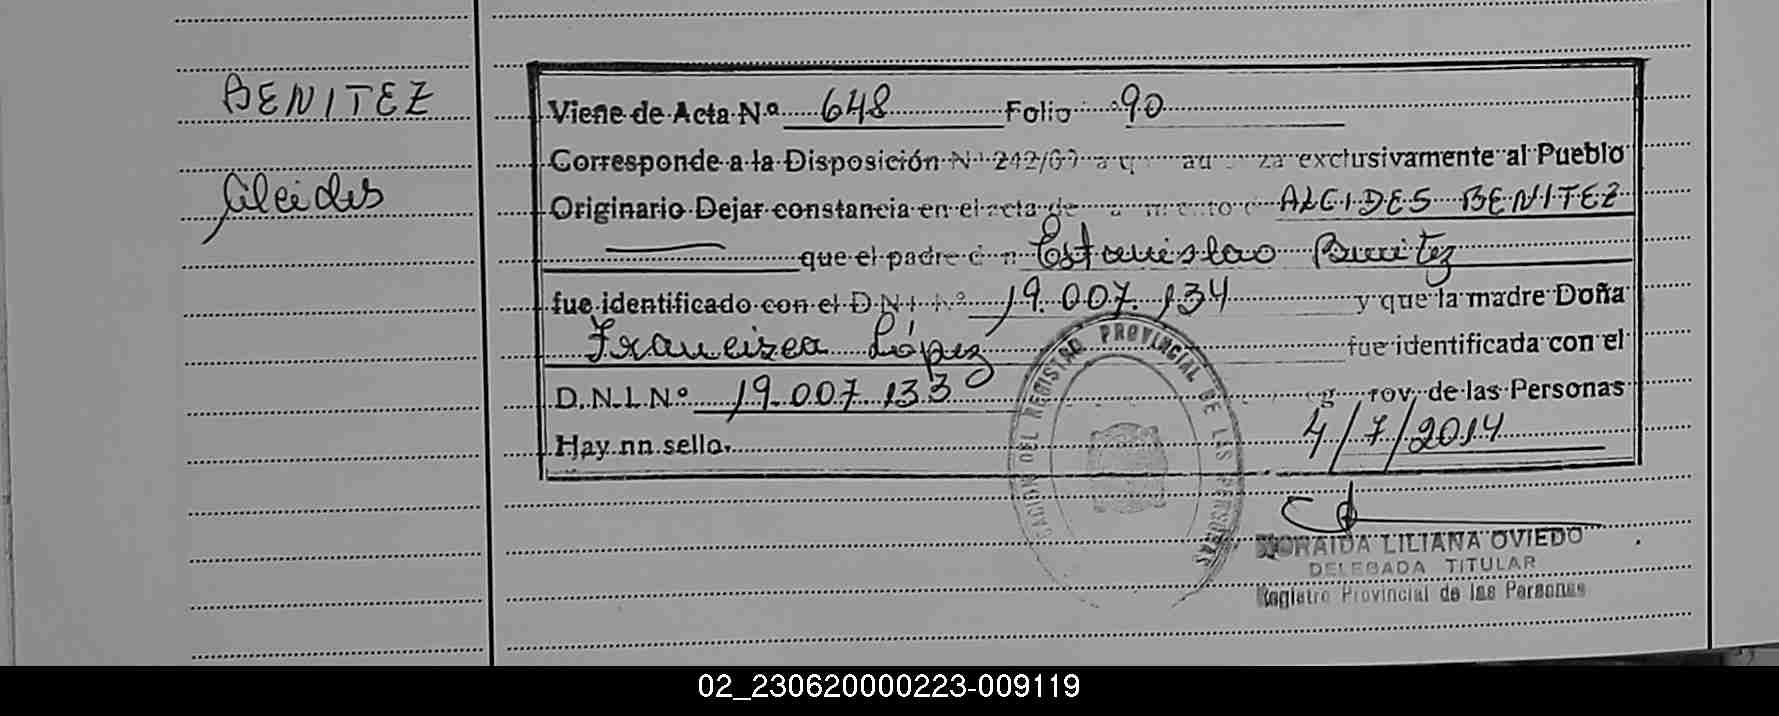 BENITEZ
Alcides
Viene de Acta Nº 648 Folio 90
Corresponde a la Disposición Nº 242/09 exclusivamente al Pueblo
Originario Dejar constancia en el acta de ALCIDES BENITEZ
que el padre Estanislao Benitez
fue identificado con el D.N.I. Nº 19.007.134 y que la madre Doña
Francisca López fue identificada con el
D.N.I. Nº 19.007.133 de las Personas
Hay nn sello. 4/7/2014
DEL REGISTRO PROVINCIAL DE LAS PERSONAS
ZORAIDA LILIANA OVIEDO
DELEGADA TITULAR
Registro Provincial de las Personas
02_230620000223-009119